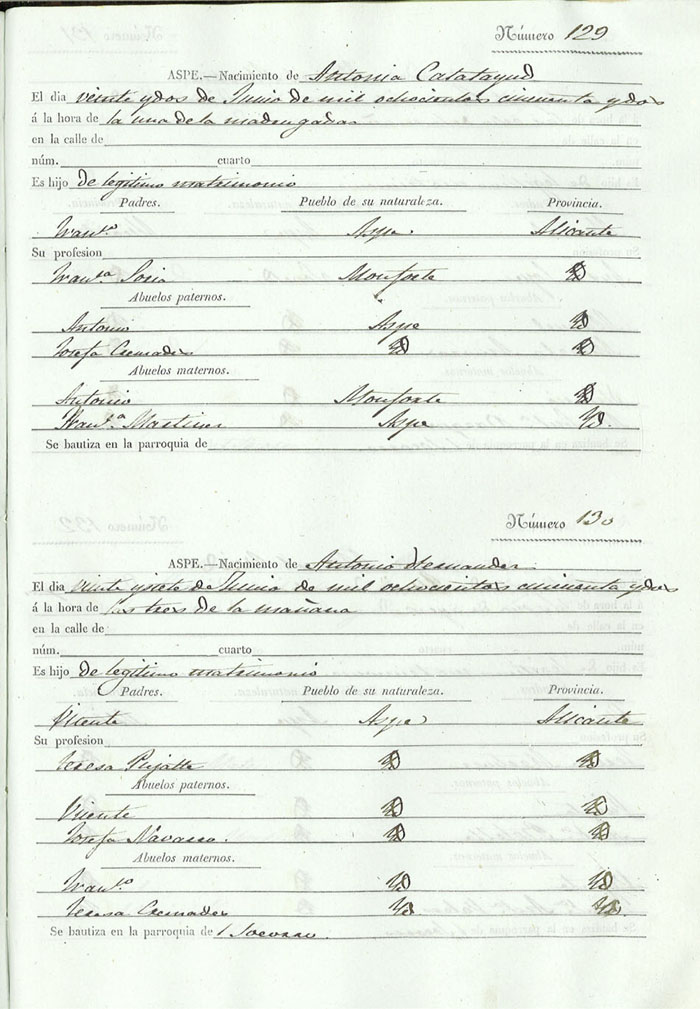 Número 129
ASPE.—Nacimiento de Antonia Calatayud
El dia veinte y dos de Junio de mil ochocientos cincuenta y dos
á la hora de la una de la madrugada
en la calle de
núm. cuarto
Es hijo de legitimo matrimonio
Padres. Pueblo de su naturaleza. Provincia.
Fran.co Aspe Alicante
Su profesion
Fran.ca Soria Monforte Yd
Abuelos paternos.
Antonio Aspe Yd
Josefa Cremades Yd Yd
Abuelos maternos.
Antonio Monforte Yd
Fran.ca Martinez Aspe Yd
Se bautiza en la parroquia de
Número 130
ASPE.—Nacimiento de Antonio Hernandez
El dia veinte y siete de Junio de mil ochocientos cincuenta y dos
á la hora de las tres de la mañana
en la calle de
núm. cuarto
Es hijo de legitimo matrimonio
Padres. Pueblo de su naturaleza. Provincia.
Vicente Aspe Alicante
Su profesion
Teresa Yd Yd
Abuelos paternos.
Vicente Yd Yd
Josefa Navarro. Yd Yd
Abuelos maternos.
Fran.co Yd Yd
Teresa Cremades Yd Yd
Se bautiza en la parroquia de l Socorro.